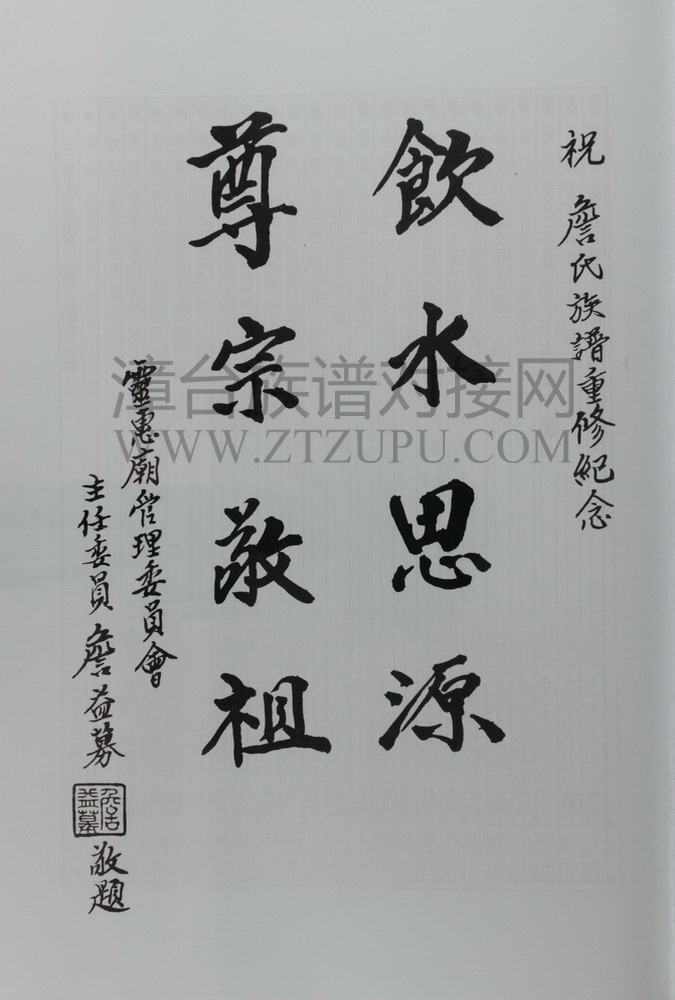 祝 詹氏族譜重修紀念
飲水思源
尊宗敬祖
靈惠廟管理委員會
主任委員 詹益募
詹益募
敬題
漳台族谱对接网
WWW.ZTZUPU.COM